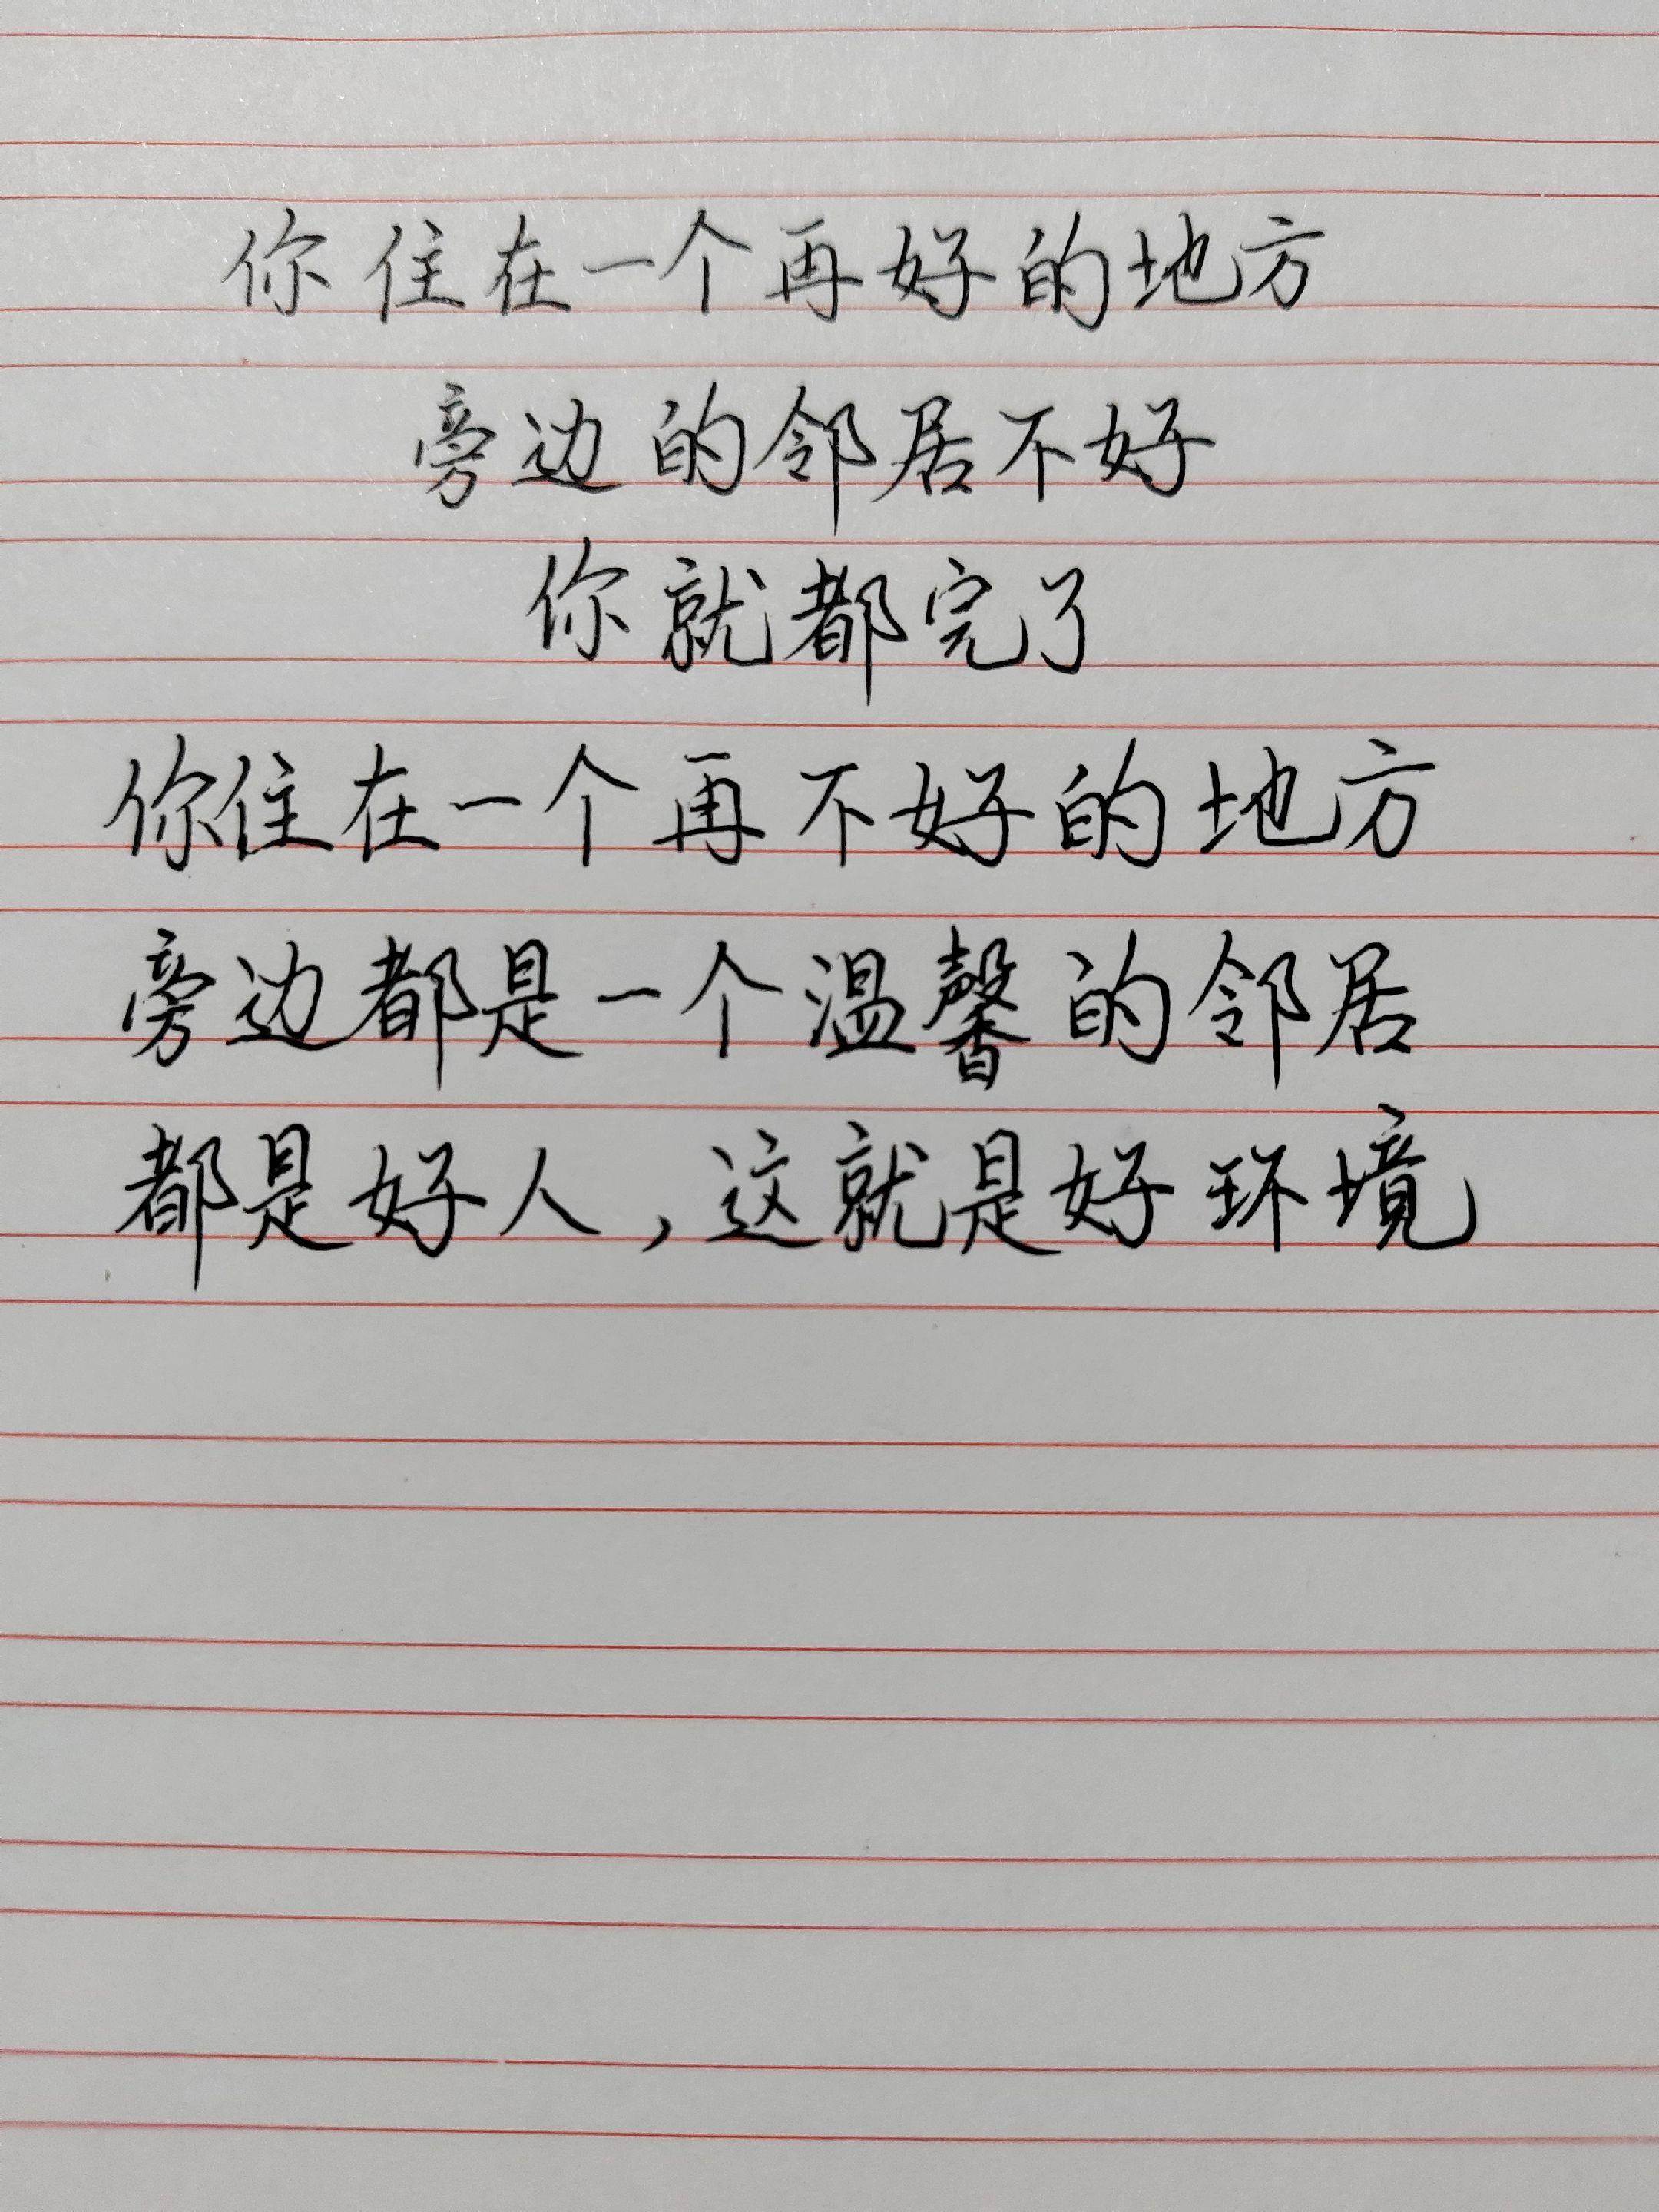 你住在一个再好的地方
旁边的邻居不好
你就都完了
你住在一个再不好的地方
旁边都是一个温馨的邻居
都是好人,这就是好环境